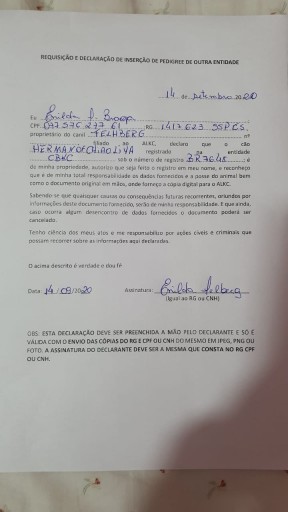 REQUISIÇÃO E DECLARAÇÃO DE INSERÇÃO DE PEDIGREE DE OUTRA ENTIDADE
14 de Setembro 2020
Eu Enilda A.
CPF RG 1417623 SSP ES,
proprietário do canil TELHBERG nº
filiado ao ALKC, declaro que o cão
registrado na entidade
CBKC sob o número de registro é
de minha propriedade, autorizo que seja feito o registro em meu nome, e reconheço
que é de minha total responsabilidade os dados fornecidos e a posse do animal bem
como o documento original em mãos, onde forneço a cópia digital para o ALKC.
Sabendo-se que quaisquer causas ou consequências futuras recorrentes, oriundos por
informações deste documento fornecido, serão de minha responsabilidade. E que ainda,
caso ocorra algum desencontro de dados fornecidos o documento poderá ser
cancelado.
Tenho ciência dos meus atos e me responsabilizo por ações cíveis e criminais que
possam recorrer sobre as informações aqui declaradas.
O acima descrito é verdade e dou fé
Data: 14 / 09/2020 Assinatura: Enilda
(Igual ao RG ou CNH)
OBS: ESTA DECLARAÇÃO DEVE SER PREENCHIDA A MÃO PELO DECLARANTE E SÓ É
VÁLIDA COM O ENVIO DAS CÓPIAS DO RG E CPF OU CNH DO MESMO EM JPEG, PNG OU
FOTO. A ASSINATURA DO DECLARANTE DEVE SER A MESMA QUE CONSTA NO RG CPF
OU CNH.